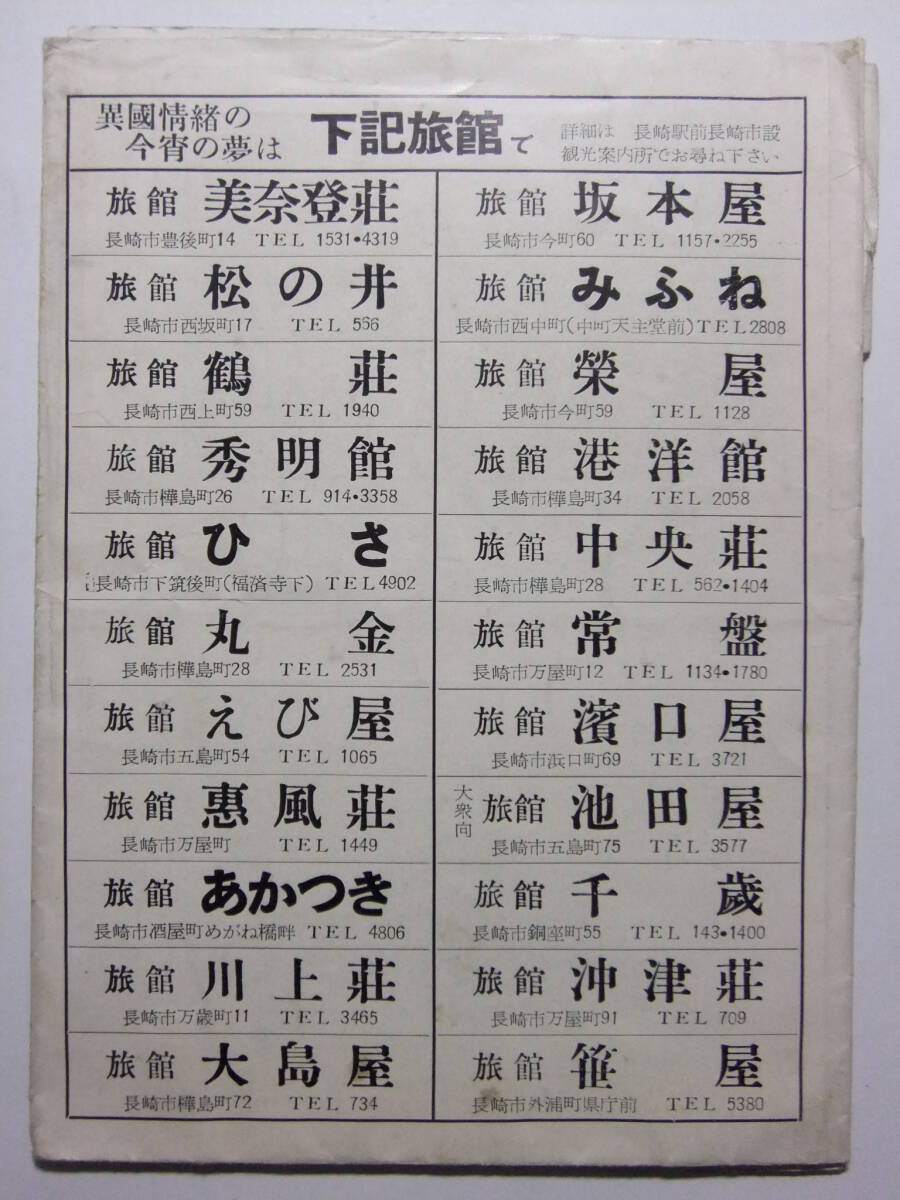 異國情緒の
今宵の夢は
下記旅館で
詳細は 長崎駅前長崎市設
観光案内所でお尋ね下さい
旅館 美奈登莊
長崎市豊後町14 TEL 1531•4319
旅館 松の井
長崎市西坂町17 TEL 556
旅館 鶴莊
長崎市西上町59 TEL 1940
旅館 秀明館
長崎市樺島町26 TEL 914•3358
旅館 ひさ
長崎市下筑後町(福済寺下) TEL4902
旅館 丸金
長崎市樺島町28 TEL 2531
旅館 えび屋
長崎市五島町54 TEL 1065
旅館 惠風莊
長崎市万屋町 TEL 1449
旅館 あかつき
長崎市酒屋町めがね橋畔 TEL 4806
旅館 川上莊
長崎市万歳町11 TEL 3465
旅館 大島屋
長崎市樺島町72 TEL 734
旅館 坂本屋
長崎市今町60 TEL 1157•2255
旅館 みふね
長崎市西中町(中町天主堂前)TEL2808
旅館 榮屋
長崎市今町59 TEL 1128
旅館 港洋館
長崎市樺島町34 TEL 2058
旅館 中央莊
長崎市樺島町28 TEL 562•1404
旅館 常盤
長崎市万屋町12 TEL 1134•1780
旅館 濱口屋
長崎市浜口町69 TEL 3721
大衆向
旅館 池田屋
長崎市五島町75 TEL 3577
旅館 千歲
長崎市銅座町55 TEL 143•1400
旅館 沖津莊
長崎市万屋町91 TEL 709
旅館 笹屋
長崎市外浦町県庁前 TEL 5380